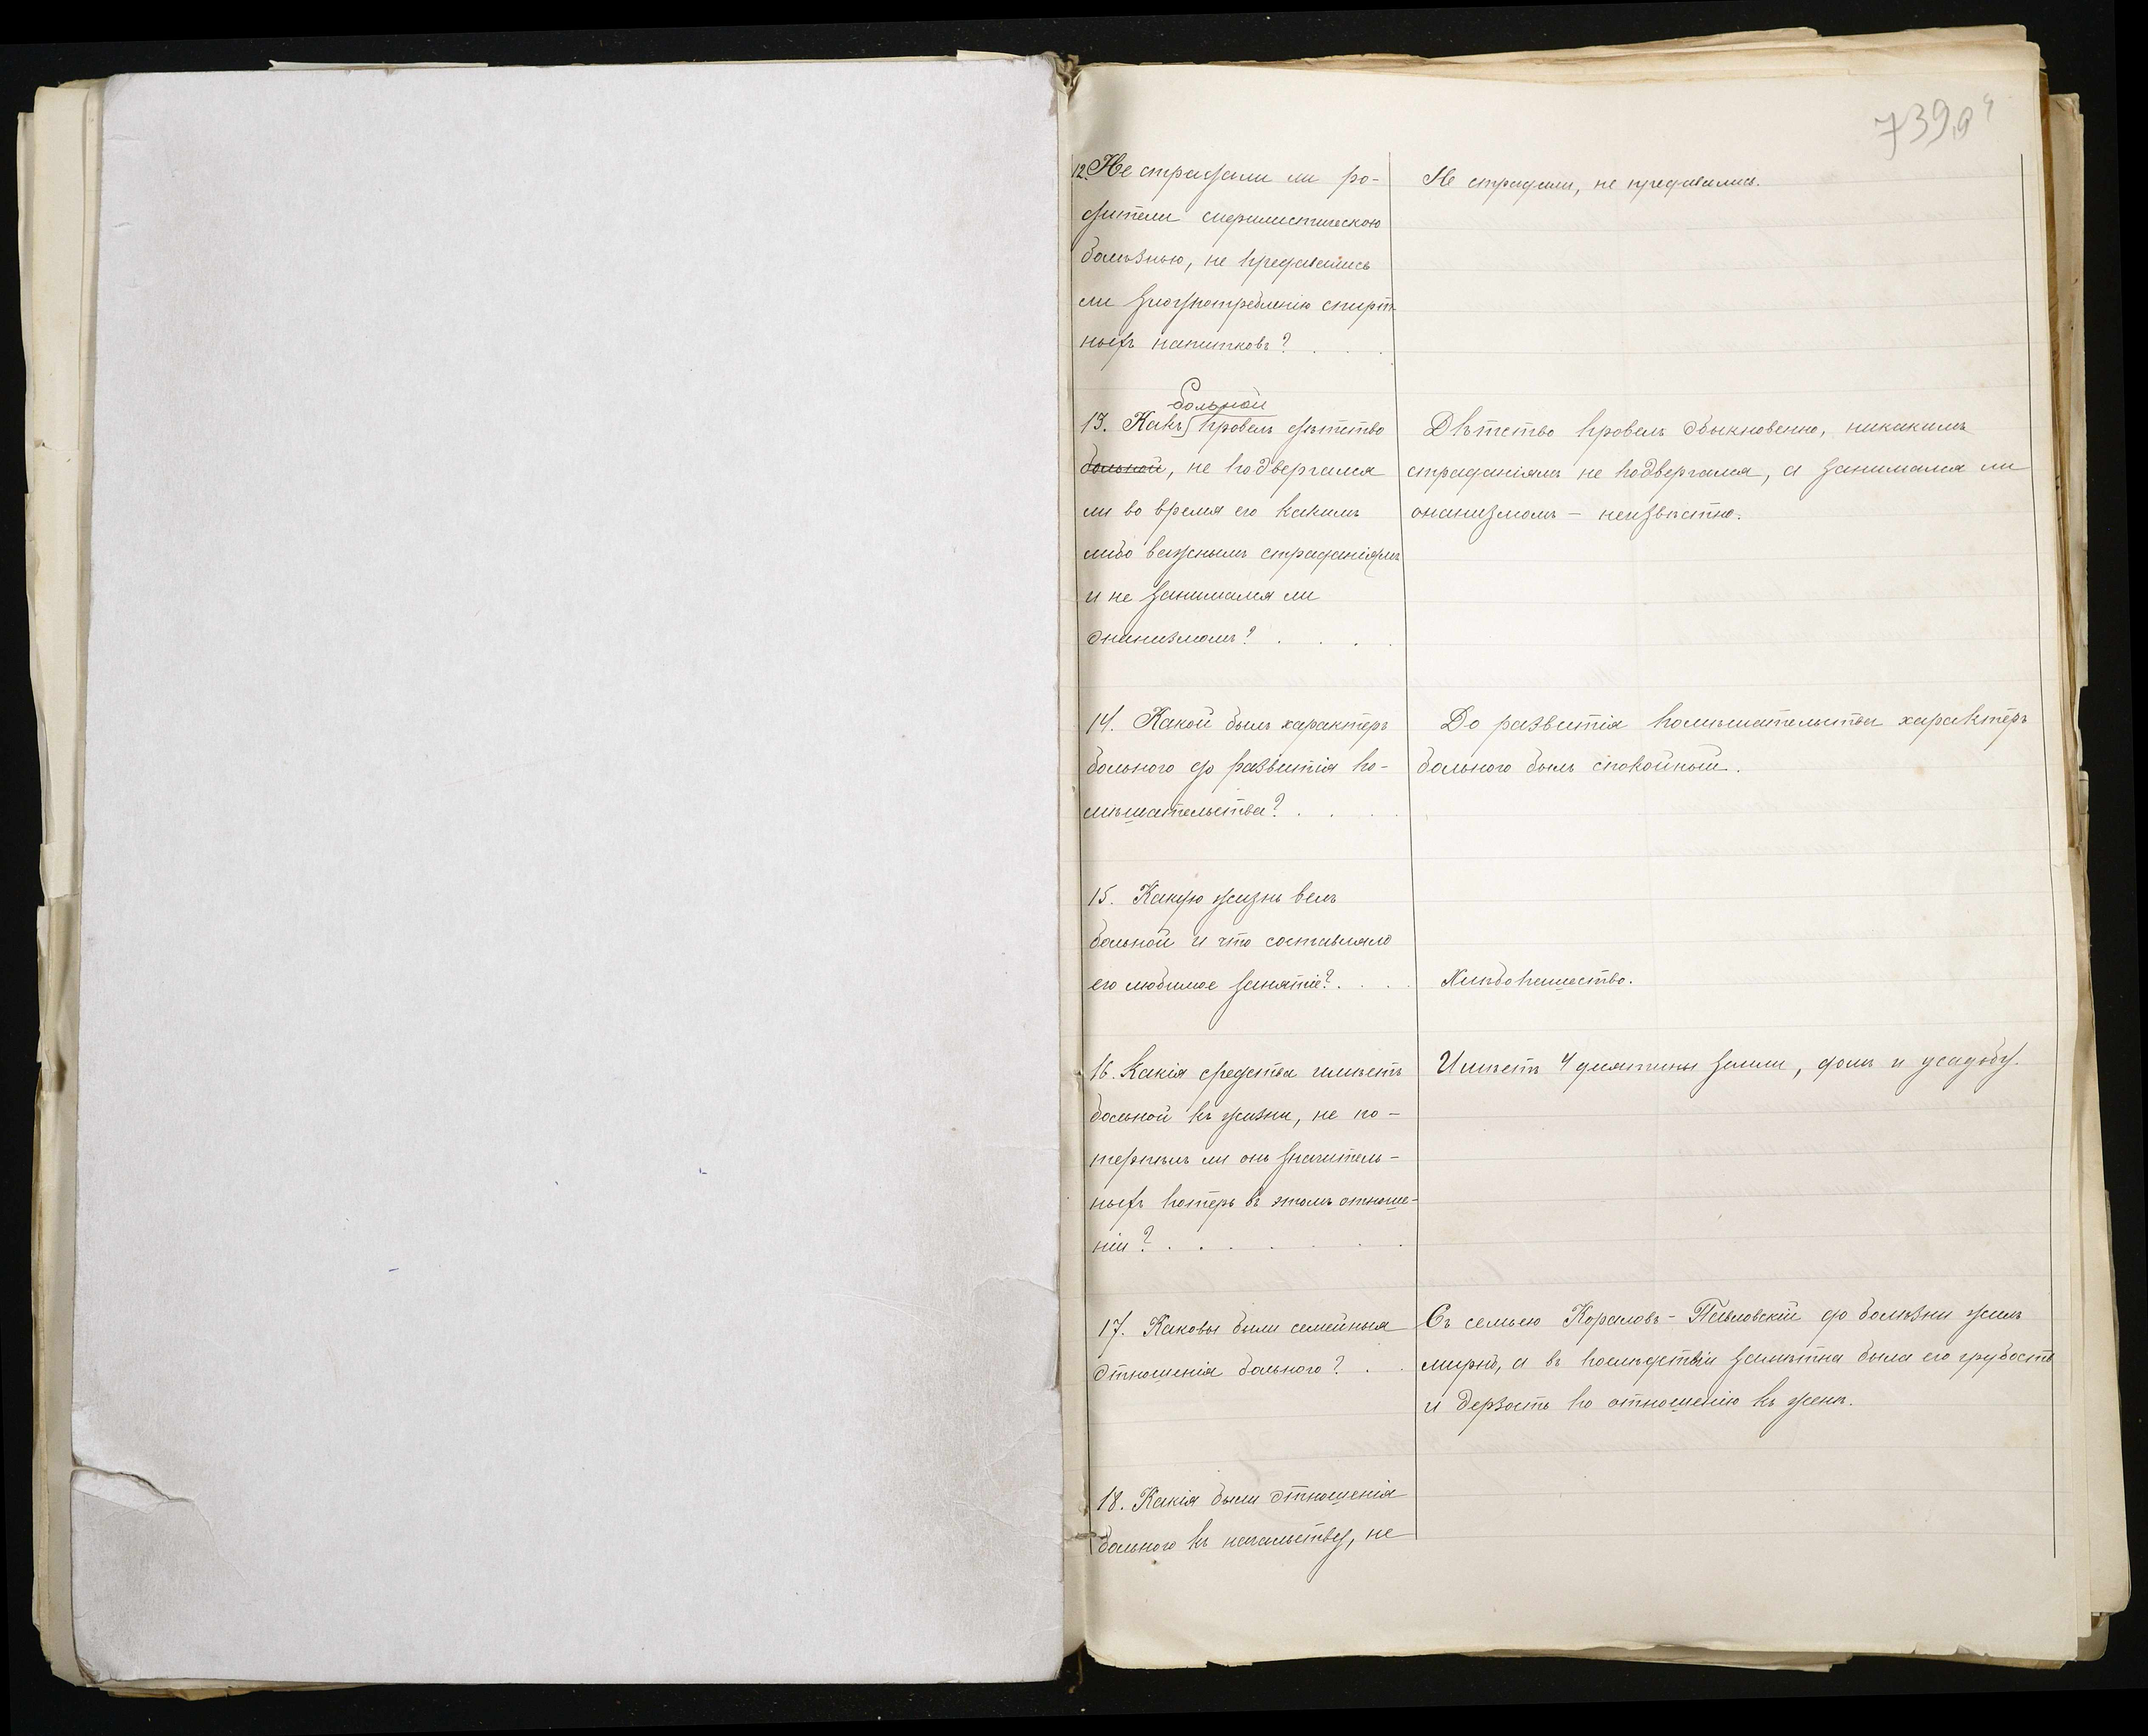 739,
12. Не страдали ли ро-
дители сифилистическою
болѣзнью, не предавались
ли злоупотребленію спирт-
ныхъ напитковъ? . . .
Не страдали, не предавались.
больной
13. Какъ провелъ дѣтство
больной, не подвергался
ли во время его какимъ
либо важнымъ страданіямъ
и не занимался ли
онанизмомъ? . . .
Дѣтство провелъ обыкновенно, никакимъ
страданіямъ не подвергался, а занимался ли
онанизмомъ – неизвѣстно.
14. Какой былъ характеръ
больного до развитія по-
мѣшательства? . . .
До развитія помѣшательства характеръ
больного былъ спокойный.
15. Какую жизнь велъ
больной и что составляло
его любимое занятіе? . . .
Хлѣбопашество.
16. Какія средства имѣетъ
больной къ жизни, не по-
терпѣлъ ли онъ значитель-
ныхъ потерь въ этомъ отноше-
ніи? . . . . . .
Имѣетъ 4 десятины земли, домъ и усадьбу.
17. Каковы были семейныя
отношенія больного? . .
Съ семьею Кораловъ-Павловскій до болѣзни жилъ
мирно, а въ послѣдствіи замѣтна была его грубость
и дерзость по отношенію къ женѣ.
18. Какія были отношенія
больного къ начальству, не